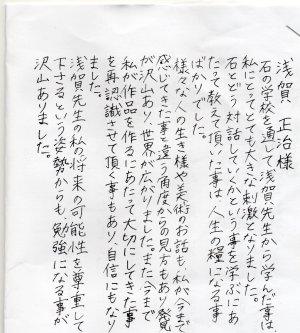 浅賀 正治様
石の学校を通して、浅賀先生から学んだ事は、
私にとってとても大きな刺激となりました。
石とどう対話していくかという事を学ぶにあ
たって教えて頂いた事は、人生の糧になる事
ばかりでした。
様々な人の生き様や美術のお話も、私が今まで
感じてきた事と違う角度からの見方もあり、発見
が沢山あり、世界が広がりました。また、今まで
私が作品を作るにあたって大切にしてきた事
を再認識させて頂く事もあり、自信にもなり
ました。
浅賀先生の私の将来の可能性を尊重して
下さるという姿勢からも、勉強になる事が
沢山ありました。